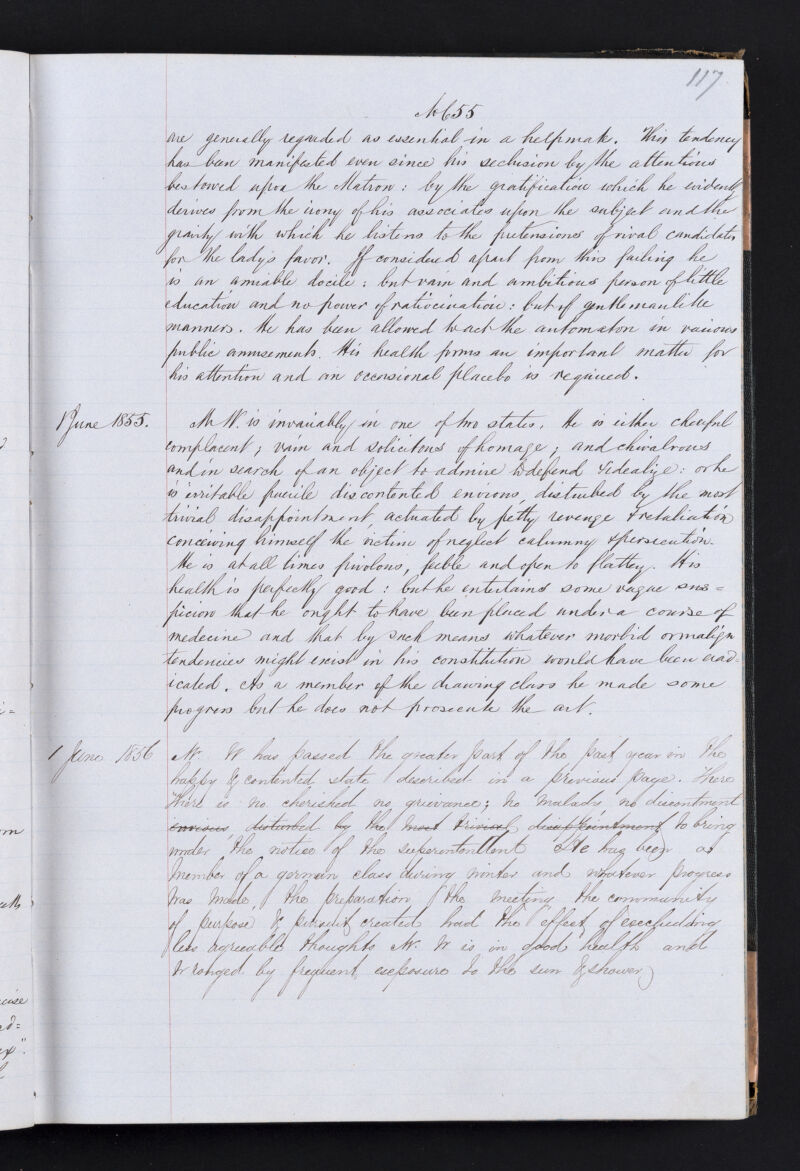 117.
No 655
are generally regarded as essential in a helpmate. This tendency
has been manifested even since his seclusion by the attentions
bestowed upon the Matron: by the gratification which he evidently
derives from the irony of his associates upon the subject and the
gravity with which he listens to the pretensions of rival candidates
for the lady's favor. If considered apart from this failing he
is an amiable docile: but vain and ambitious person of little
education and no power of ratiocination: but of gentlemanlike
manners. He has been allowed to act the automaton in various
public amusements. His health forms an important matter for
his attention and an occasional placebo is required.
1 June 1855.
Mr W. is invariably in one of two states. He is either cheerful
complacent; vain and solicitous of homage; and chivalrous
and in search of an object to admire to defend & idealize: or he
is irritable puerile discontented envious, disturbed by the most
trivial disappointment, actuated by petty revenge & retaliation
conceiving himself the victim of neglect calumny & persecution.
He is at all times frivolous, feeble and open to flattery. His
health is perfectly good: but he entertains some vague sus=
picion that he ought to have been placed under a course of
medecine and that by such means whatever morbid or malign
tendencies might exist in his constitution would have been erad-
icated. As a member of the drawing class he made some
progress but he does not prosecute the art.
1 June 1856
Mr. W has passed the greater part of the past year in the
happy & contented state described in a previous page. There
There is no cherished no grievance; no malady no discontment
envious disturbed by the most trivial disappointment to bring
under the notice of the superintenttent He has been a
member of a german class during winter and whatever progress
was made, the preparation, the meeting the community
of purpose & pursuit created had the effect of excludding
less agreeable thoughts Mr. W is in good health and
by frequent exposure to the sun & shower